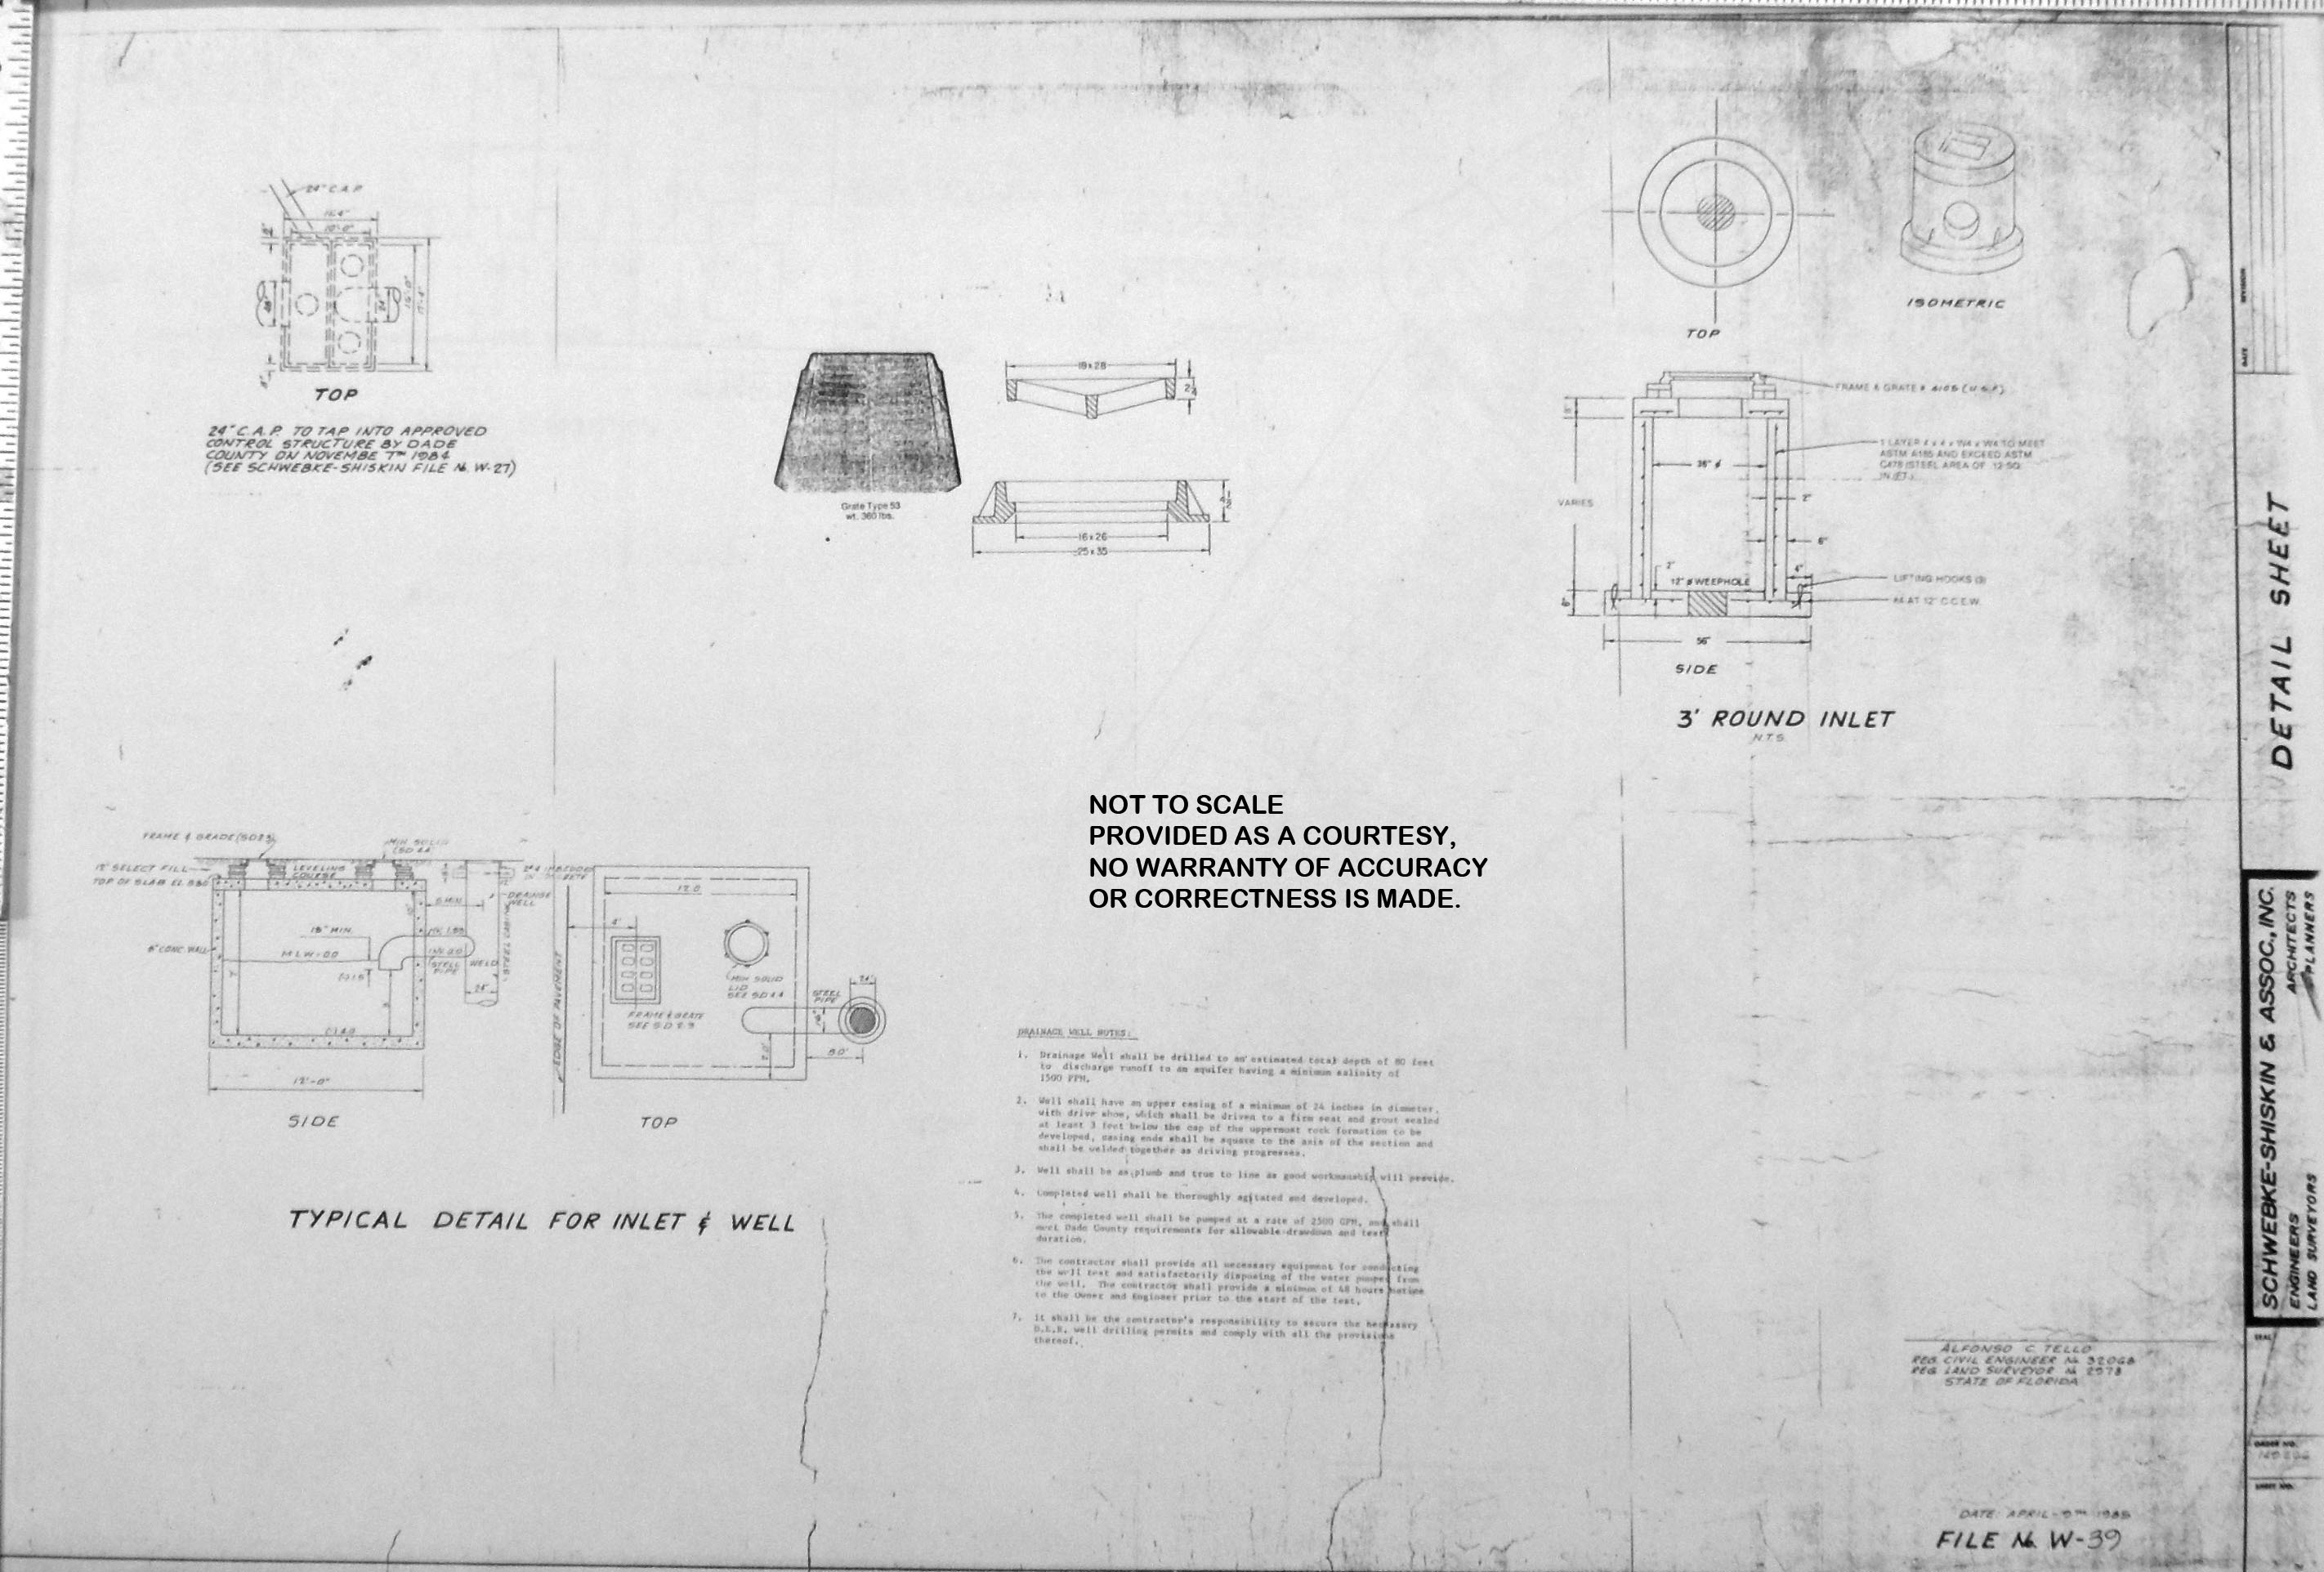 24" C.A.P.
16'-0"
TOP
24" C.A.P. TO TAP INTO APPROVED
CONTROL STRUCTURE BY DADE
COUNTY ON NOVEMBE 7TH 1984
(SEE SCHWEBKE-SHISKIN FILE No. W-27)
Grate Type 53
wt. 360 lbs.
18x28
16x26
25x35
TOP
ISOMETRIC
FRAME & GRATE # 4105 (U.S.F.)
1 LAYER 4 x 4 x W4 x W4 TO MEET
ASTM A185 AND EXCEED ASTM
C478 (STEEL AREA OF .12 SQ.
IN./FT.)
36" ø
VARIES
2"
6"
2"
12" ø WEEPHOLE
4"
LIFTING HOOKS (3)
#4 AT 12" C.C.E.W.
6"
56"
SIDE
3' ROUND INLET
N.T.S.
NOT TO SCALE
PROVIDED AS A COURTESY,
NO WARRANTY OF ACCURACY
OR CORRECTNESS IS MADE.
FRAME & GRADE
MH. SOLID
12" SELECT FILL
LEVELING
COURSE
TOP OF SLAB EL.
DRAINGE
WELL
5 MIN.
18" MIN.
8" CONC. WALL
M L W = 0.0
STEEL
PIPE
WELD
STEEL CASING
24"
(-) 4.0
12'-0"
SIDE
EDGE OF PAVEMENT
12.0
4'
MH SOLID
LID
SEE S.D 4.4
FRAME & GRATE
SEE S.D 2.3
STEEL
PIPE
24"
2.0'
8.0'
TOP
TYPICAL DETAIL FOR INLET & WELL
DRAINAGE WELL NOTES:
1. Drainage Well shall be drilled to an estimated total depth of 80 feet
to discharge runoff to an aquifer having a minimum salinity of
1500 PPM.
2. Well shall have an upper casing of a minimum of 24 inches in diameter,
with drive shoe, which shall be driven to a firm seat and grout sealed
at least 3 feet below the cap of the uppermost rock formation to be
developed, casing ends shall be square to the axis of the section and
shall be welded together as driving progresses.
3. Well shall be as plumb and true to line as good workmanship will provide.
4. Completed well shall be thoroughly agitated and developed.
5. The completed well shall be pumped at a rate of 2500 GPM, and shall
meet Dade County requirements for allowable drawdown and test
duration.
6. The contractor shall provide all necessary equipment for conducting
the well test and satisfactorily disposing of the water pumped from
the well. The contractor shall provide a minimum of 48 hours notice
to the Owner and Engineer prior to the start of the test.
7. It shall be the contractor's responsibility to secure the necessary
D.E.R. well drilling permits and comply with all the provisions
thereof.
ALFONSO C. TELLO
REG. CIVIL ENGINEER No. 32068
REG. LAND SURVEYOR No. 2978
STATE OF FLORIDA
DATE: APRIL - 9TH 1985
FILE No. W-39
REVISION
DATE
DETAIL SHEET
SCHWEBKE-SHISKIN & ASSOC., INC.
ENGINEERS ARCHITECTS
LAND SURVEYORS PLANNERS
SEAL
ORDER NO.
SHEET NO.